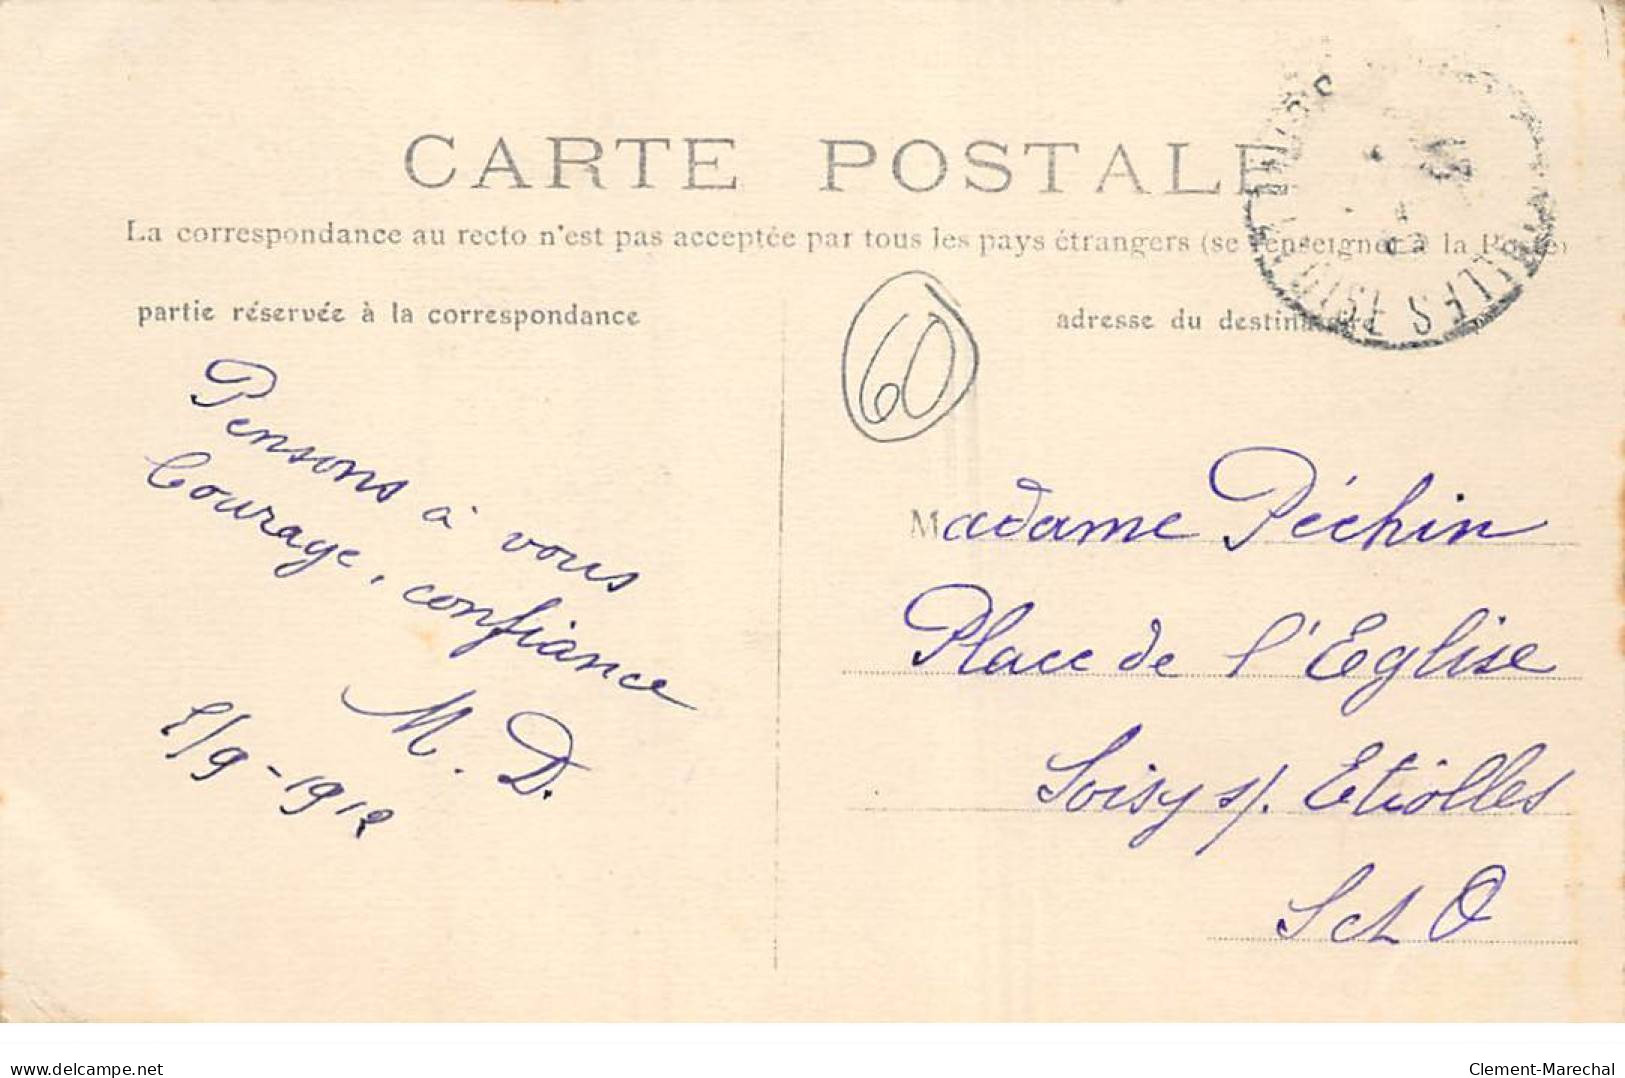 CARTE POSTALE
La correspondance au recto n'est pas acceptée par tous les pays étrangers (se renseigner à la Poste)
partie réservée à la correspondance
adresse du destinataire
60
Pensons à vous
Courage, confiance
M. D.
/9-1912
Madame Péchin
Place de l'Eglise
Soisy s/. Etiolles
S et O
delcampe.net
Clement-Marechal